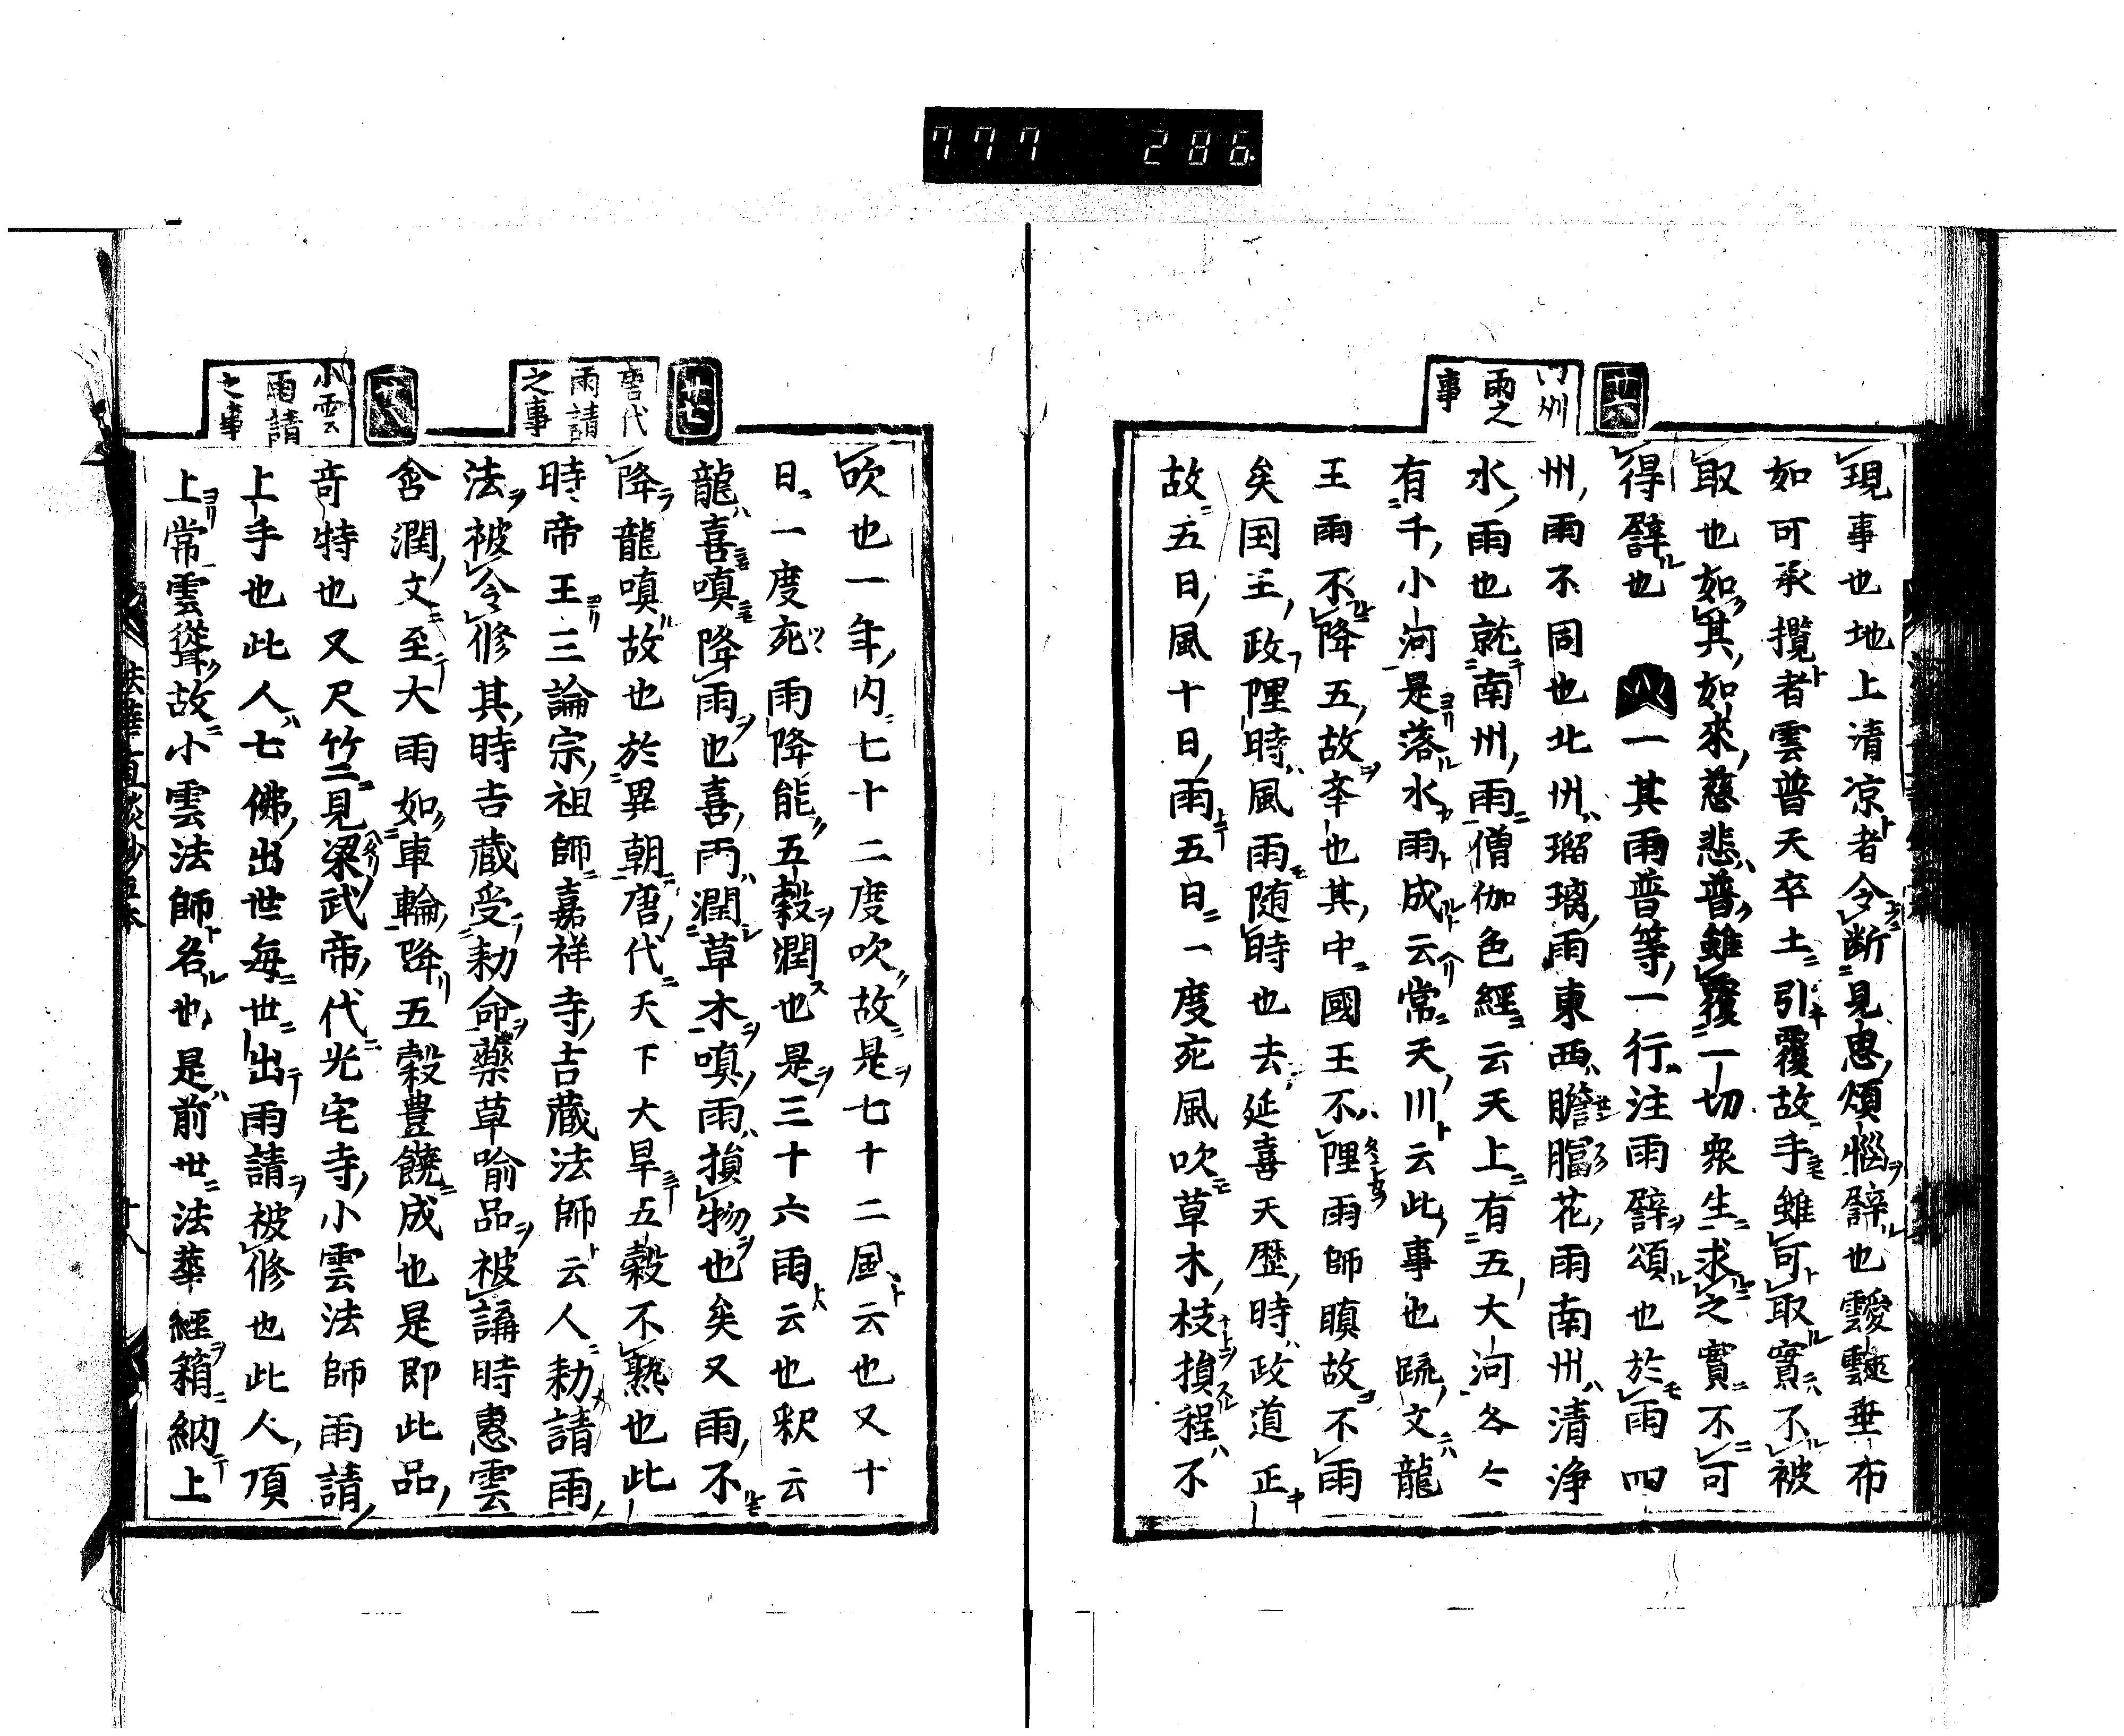 777 286
十六
四州
雨之
事
現事也地上清凉者令断見恵煩惱譬也靉靆垂布
如可承攬者雲普天卒土引覆故手雖可取實不被
取也如其如來慈悲普雖覆一切衆生求之實不可
得譬也 一其雨普等一行注雨譬頌也於雨四
州雨不同也北州瑠璃雨東西瞻膃花雨南州清浄
水雨也就南州雨僧伽色經云天上有五大河各々
有千小河是落水雨成云常天川云此事也䟽文龍
王雨不降五故峯也其中國王不理雨師瞋故不雨
矣国王政理時風雨随時也去延喜天歴時政道正
故五日風十日雨五日一度宛風吹草木枝損程不
十七
唐代
雨請
之事
十八
小雲
雨請
之事
吹也一年内七十二度吹故是七十二風云也又十
日一度宛雨降能五穀潤也是三十六雨云也釈云
龍喜嗔降雨也喜雨潤草木嗔雨損物也矣又雨不
降龍嗔故也於異朝唐代天下大旱五穀不熟也此
時帝王三論宗祖師嘉祥寺吉藏法師云人勅請雨
法被令修其時吉藏受勅命藥草喻品被講時惠雲
含潤文至大雨如車輪降五穀豊饒成也是即此品
竒特也又尺竹二見梁武帝代光宅寺小雲法師雨請
上手也此人七佛出世毎世出雨請被修也此人頂
上常雲聳故小雲法師名也是前世法華經箱納上
法華直談鈔 十八